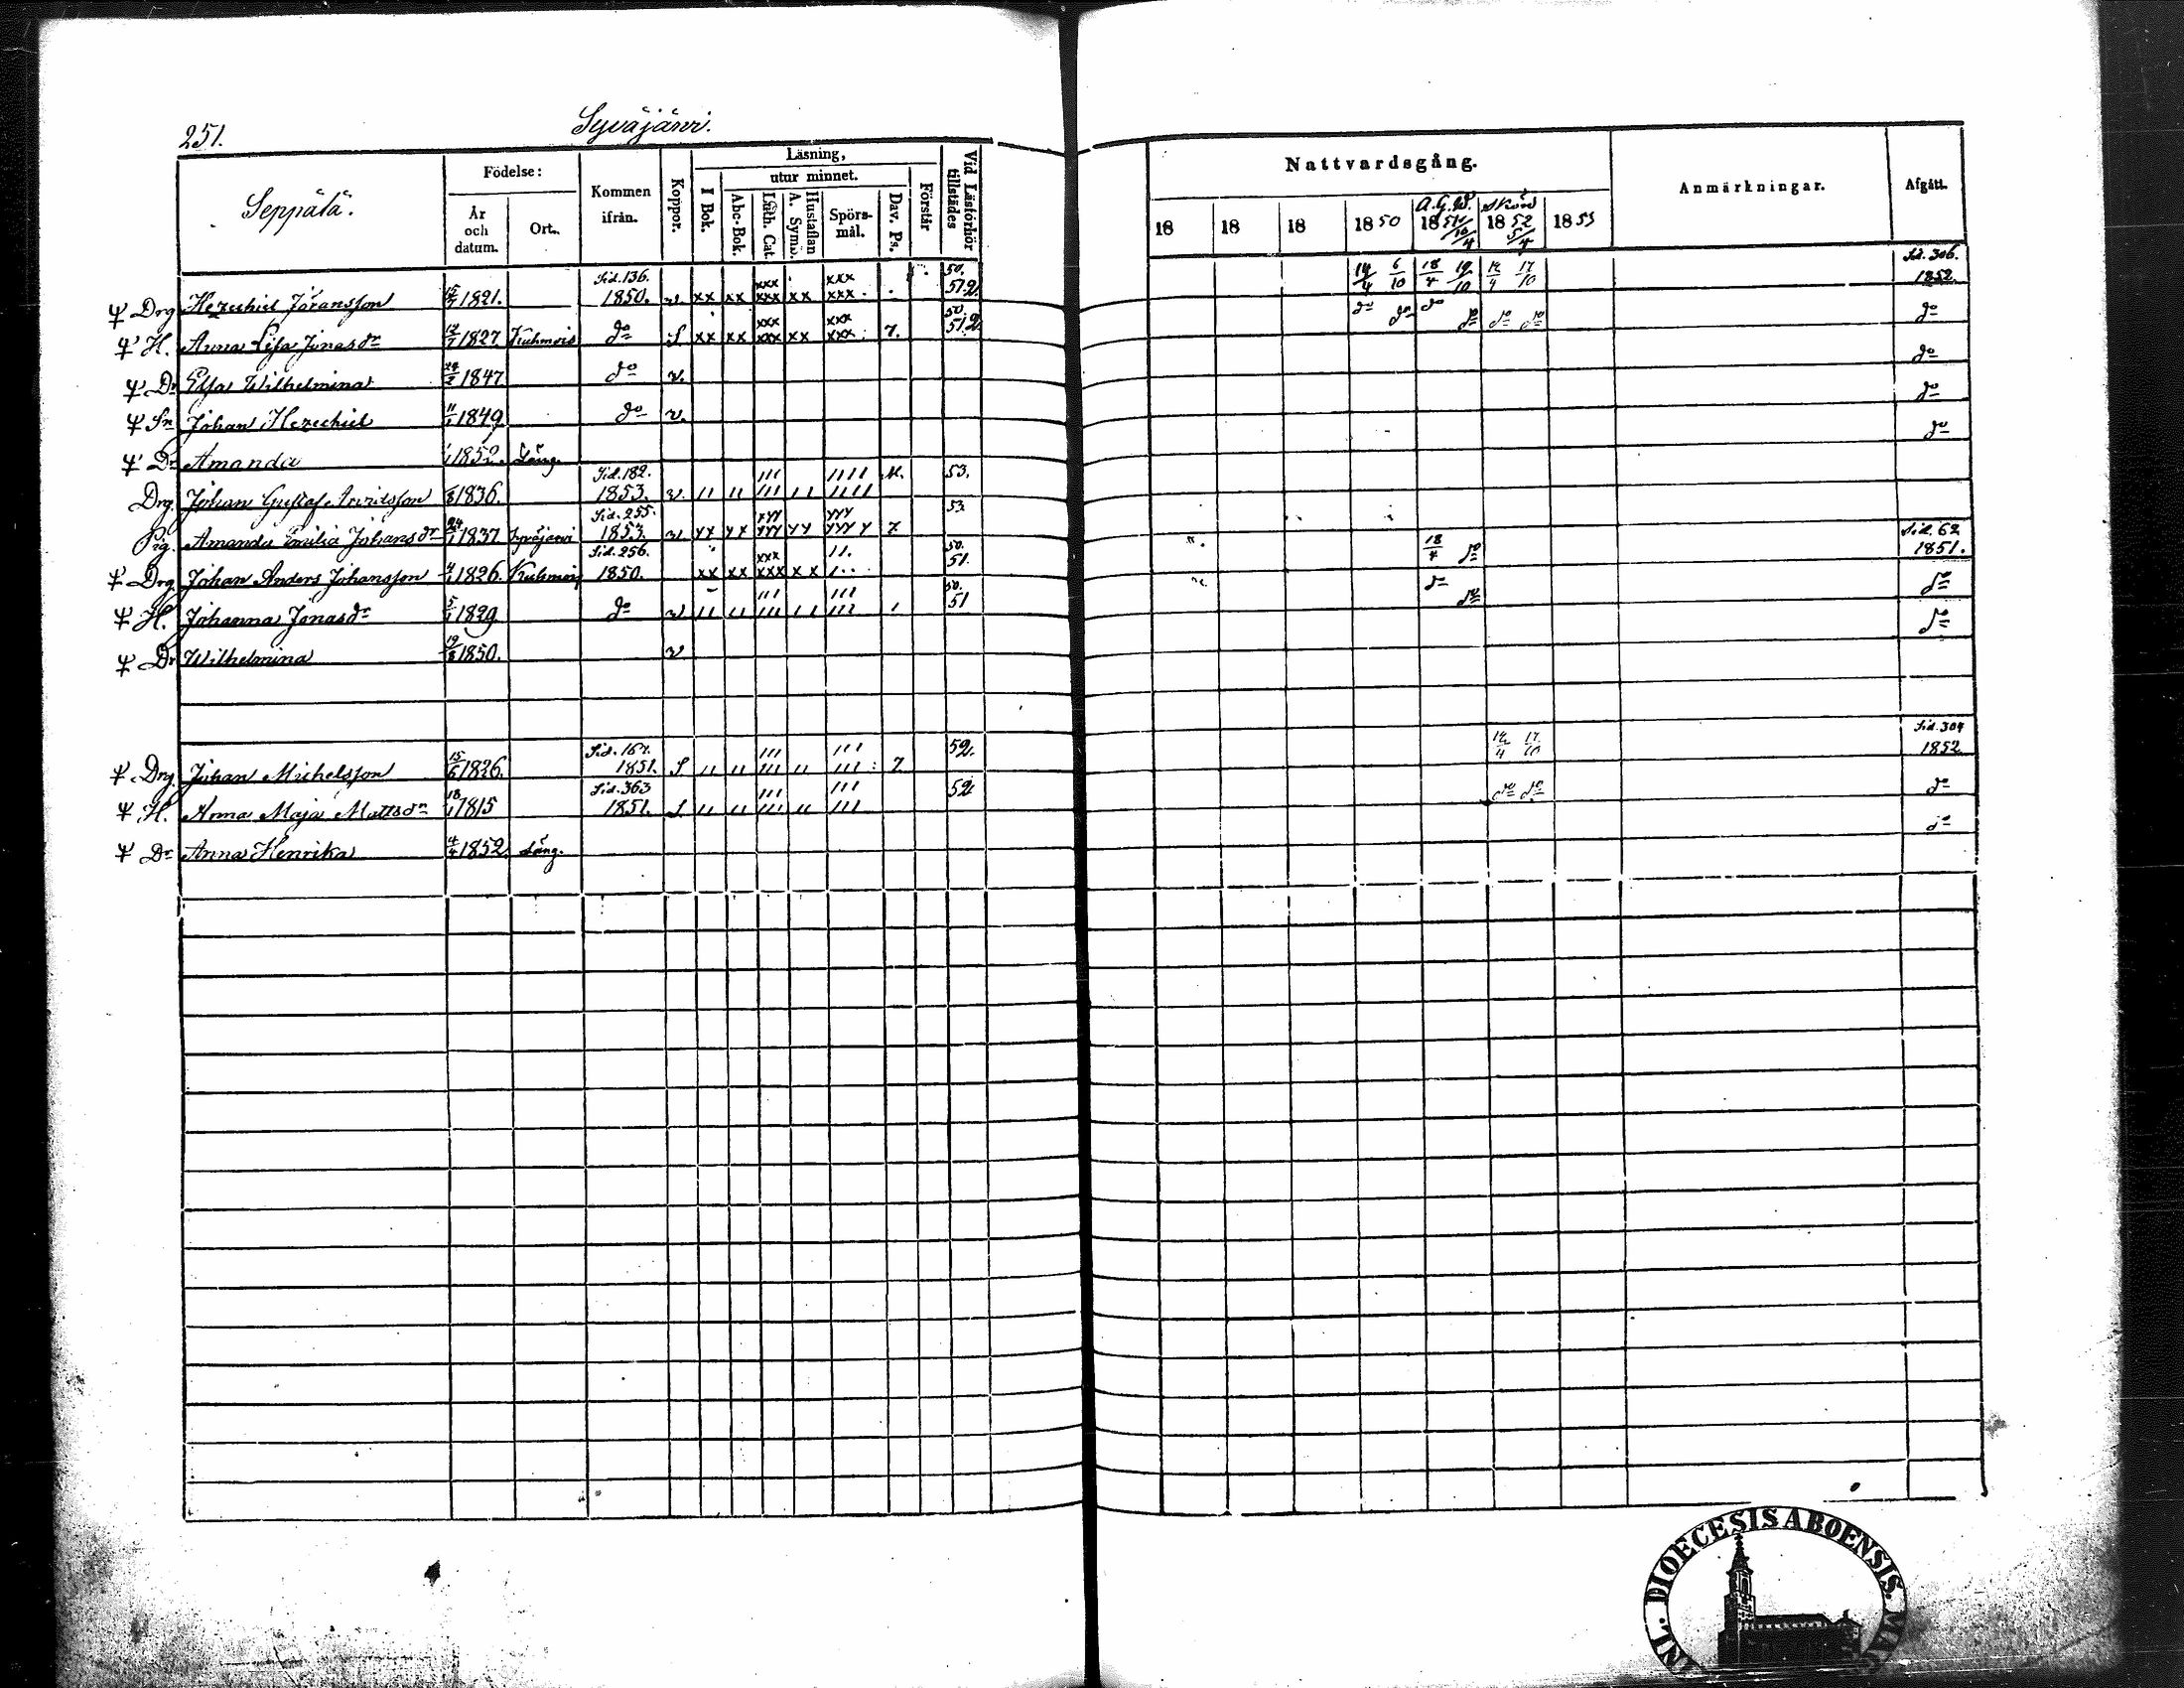 251.
Syväjärvi.
Seppälä.
Födelse:
År och datum.
Ort.
Kommen ifrån.
Koppor.
Läsning,
I Bok.
utur minnet.
Abc-Bok.
Luth. Cat.
Hustaflan A. Symb.
Spörsmål.
Dav. Ps.
Förstår
Vid Läsförhör tillstädes
Nattvardsgång.
18 18 18 1850 1851 1852 1853
A.G.W.
10/4 5/4
Anmärkningar.
Afgått.
Drg Hezechiel Johansson 1821. Sid. 136. 1850. v xx xx xxx xxx xx xxx xxx 50. 51.2. 14/4 6/10 18/4 19/10 14/4 17/10 Sid. 306. 1852
H. Anna Lisa Jonasdr 1827 Kuhmois do S xx xx xxx xxx xx xxx xxx 7. 50. 51.2 do do do do do do do
Dr Elsa Wilhelmina 1847 do v. do
Sn Johan Hezechiel 11/1 1849 do v. do
Dr Amanda 1852. Läng. do
Drg. Johan Gustaf Arvidsson 1836. Sid. 182. 1853. v. 11 11 111 111 11 1111 1111 53.
Pig. Amanda Emilia Johansdr 24/1 1837 Syväjärvi Sid. 255. 1853. v yy yy xyy yyy yy yyy yyyy 7 53
Drg Johan Anders Johansson 4/1 1826. Kuhmois Sid. 256. 1850. xx xx xxx xxx xx 11. 1.. 50. 51. 18/4 do Sid. 62 1851.
H. Johanna Jonasdr 5/1 1829 do v 11 11 111 111 11 111 111 50. 51 do do do
Dr Wilhelmina 19/8 1850. v do
Drg. Johan Michelsson 15/6 1826. Sid. 167. 1851. S 11 11 111 111 11 111 111 7 52. 14/4 17/10 Sid. 304 1852
H. Anna Maja Mattsdr 18/1 1815 Sid. 363 1851. S 11 11 111 111 11 111 111 52 do do do
Dr Anna Henrika 4/4 1852. Läng. do
DIOECESIS ABOENSIS.